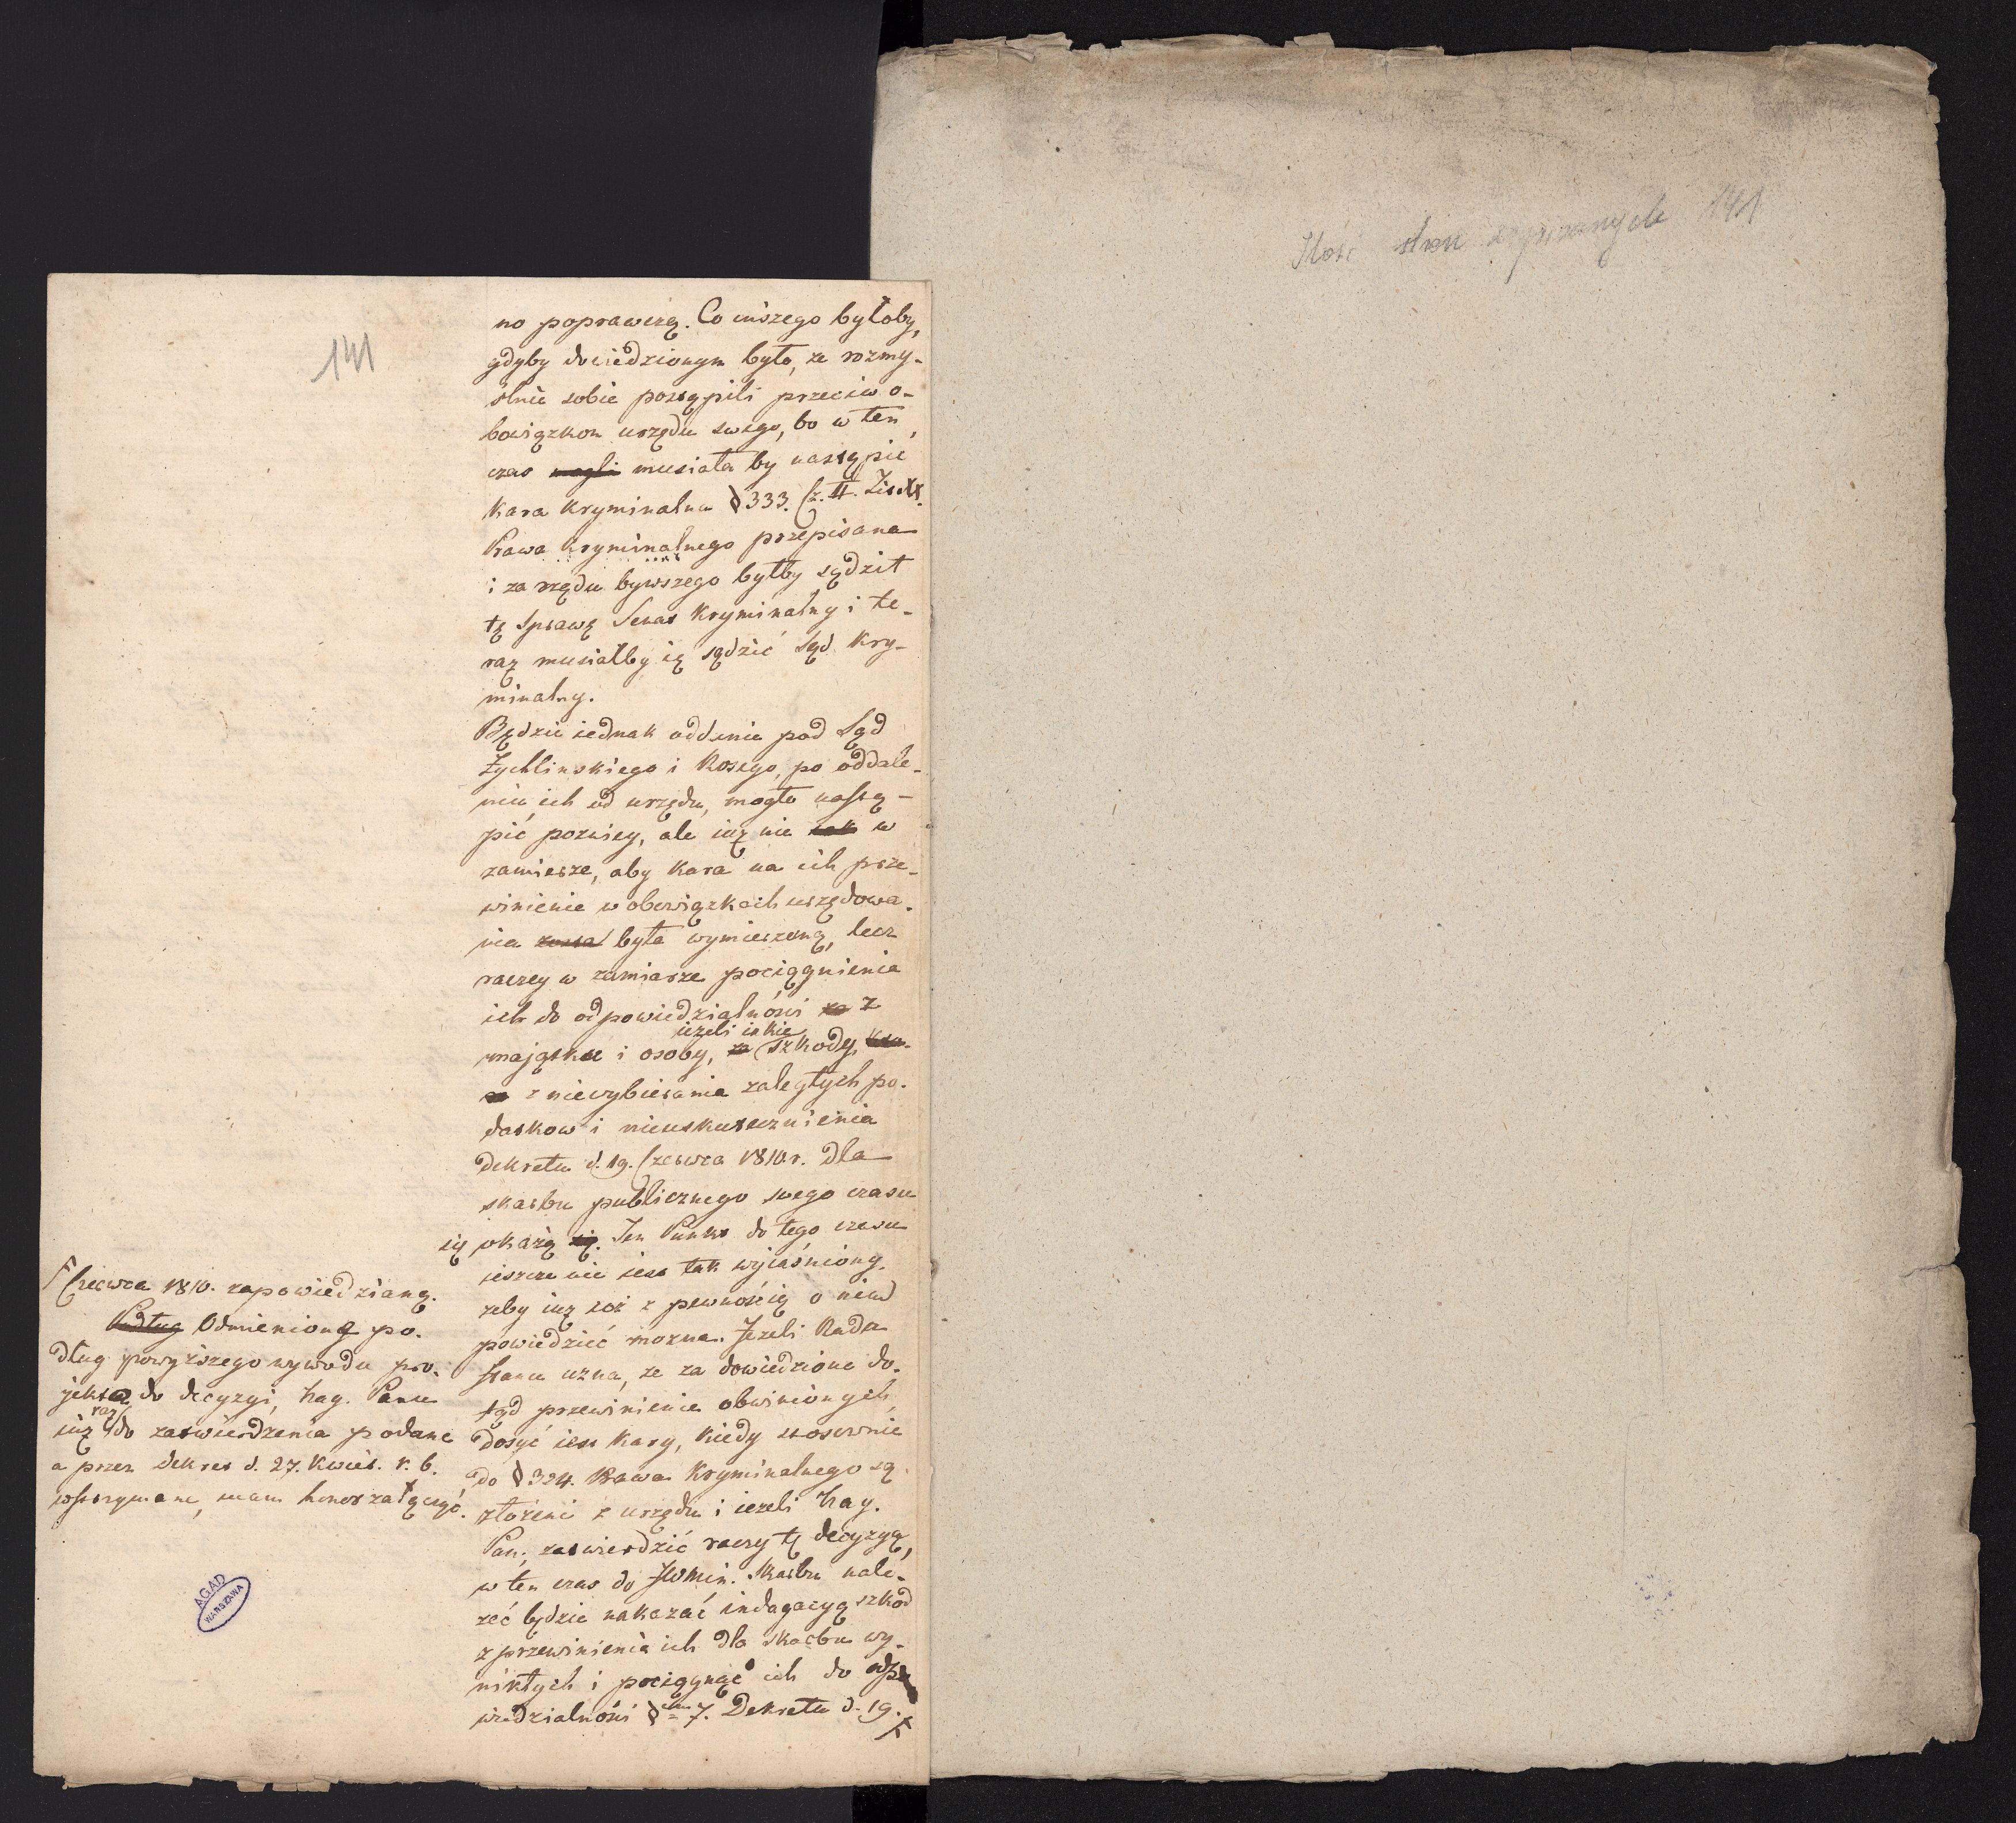 141
no poprawczą. Co inszego byłoby,
gdyby dowiedzionym było, ze rozmy-
slnie sobie postąpili przeciw o-
bowiązkom urzędu swego, bo w ten
czas mogli musiała by nastąpic
kara kryminalna § 333. Cz. II.
Prawa kryminalnego przepisana
i za rządu bywszego byłby sądził
tę sprawę Senat Kryminalny i te-
raz musiałby ią sądzić Sąd Kry-
minalny.
Będzie iednak oddanie pod Sąd
Zychlinskiego i Rosego, po oddale-
niu ich od urzędu, mogło nastą-
pić pozniey, ale iuz nie tak w
zamierze, aby kara na ich prze-
winienie w obowiązkach urzędowa-
nia była wymierzoną, lecz
raczey w zamiarze pociągnienia
ich do odpowiedzialności za z
ieżeli iakie
majątku i osoby, za szkody,
z niewybierania zaległych po-
datkow i nieuskutecznienia
Dekretu d. 19. Czerwca 1810 r. dla
skarbu publicznego swego czasu
się okażą się. Ten Punkt do tego czasu
ieszcze nie iest tak wyiaśniony,
zeby iuz coś z pewnością o nim
powiedzieć mozna. Jezeli Rada
Stanu uzna, ze za dowiedzione do-
tąd przewinienie obwinionych,
dosyć iest kary, kiedy stosownie
do § 324. Prawa Kryminalnego są
złożeni z urzędu i iezeli Nay.
Pan zatwierdzić raczy tę decyzyą,
w ten czas do JW Min. Skarbu nale-
zeć będzie nakazać indagacyą szkod
z przewinienia ich dla skarbu wy-
nikłych i pociągnąć ich do odpo
wiedzialności § 7. Dekretu d. 19.
Czerwca 1810. zapowiedzianą.
Podług Odmienioną po-
dług powyższego wywodu pro-
jekta do decyzyi, Nay. Panu
raz
iuz do zatwierdzenia podane
a przez Dekret d. 27. Kwiet. r. b.
wstrzymane, mam honor załączyć.
AGAD
WARSZAWA
Ilość stron zapisanych 141